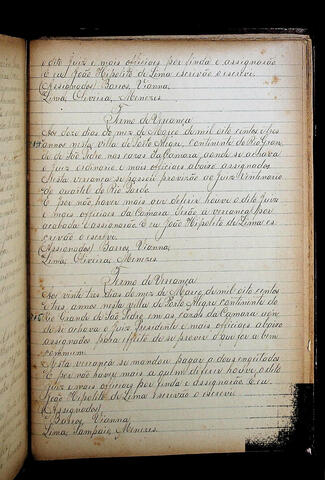 o dito juiz e mais officiaes por finda e assignarão
E eu João Hipolito de Lima escrivão o escrevi
(Assignados) Barros, Vianna,
Lima, Oliveira, Menezes.
Termo de Vereança
Aos doze dias do mez de Março de mil oito centos e tres
annos nesta villa de Porto Alegre, Continente do Rio Gran
de de São Pedro nas cazas da Camara, aonde se achava
o juiz ordinario e mais officiaes abaixo assignados.
Nesta vereança se passou provizão ao Juiz Ventenario
do quartel do Rio Pardo.
E por não haver mais que deferir houve o dito juiz
e mais officiaes da Camara a vereança por
acabada E assignarão E eu João Hipolito de Lima es
crivão o escrevi.
(Assignados) Barros, Vianna,
Lima, Oliveira, Menezes.
Termo de Vereança
Aos vinte tres dias do mez de Março de mil oito centos
e tres annos nesta villa de Porto Alegre continente do
Rio Grande de São Pedro em as cazas da Camara aon
de se achava o Juiz Presidente e mais officiaes abaixo
assignados para effeito de se prover o que for a bem
commum.
Nesta vereança se mandou pagar a dous engeitados
E por não haver mais a que deferir houve o dito
Juiz e mais officiaes por finda e assignarão E eu
João Hipolito de Lima escrivão o escrevi
(Assignados)
Barros, Vianna
Lima, Sampaio, Menezes.